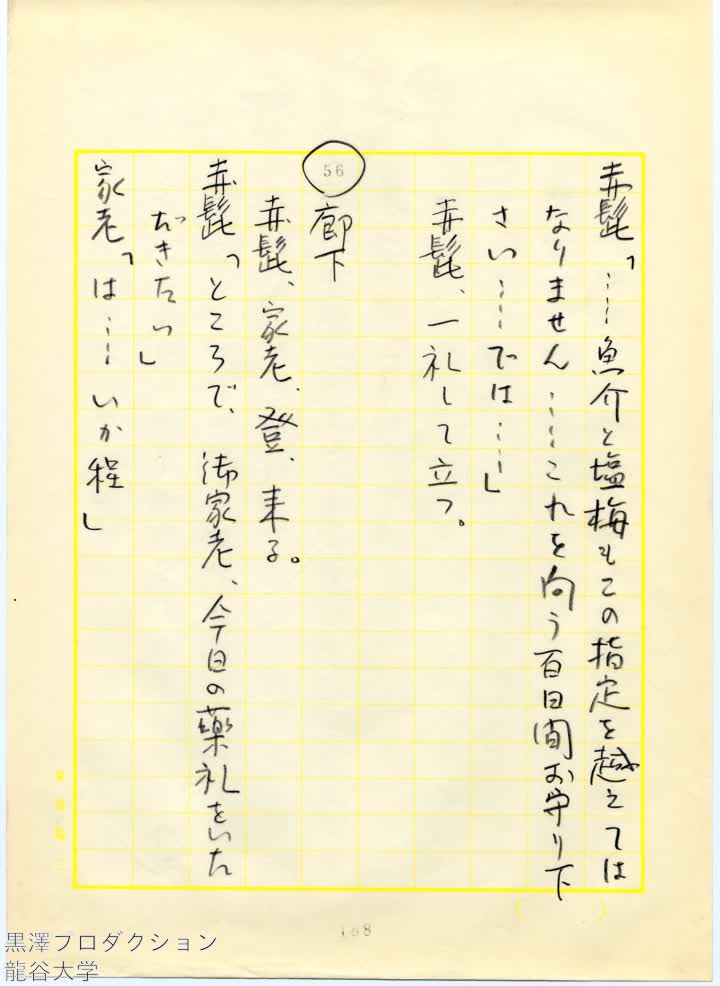 赤髭「……魚介と塩梅もこの指定を越えては
なりません……これを向う百日間お守り下
さい……では……」
赤髭、一礼して立つ。
56 廊下
赤髭、家老、登、来る。
赤髭「ところで、御家老、今日の薬礼をいた
だきたい」
家老「は……いか程」
168
黒澤プロダクション
龍谷大学